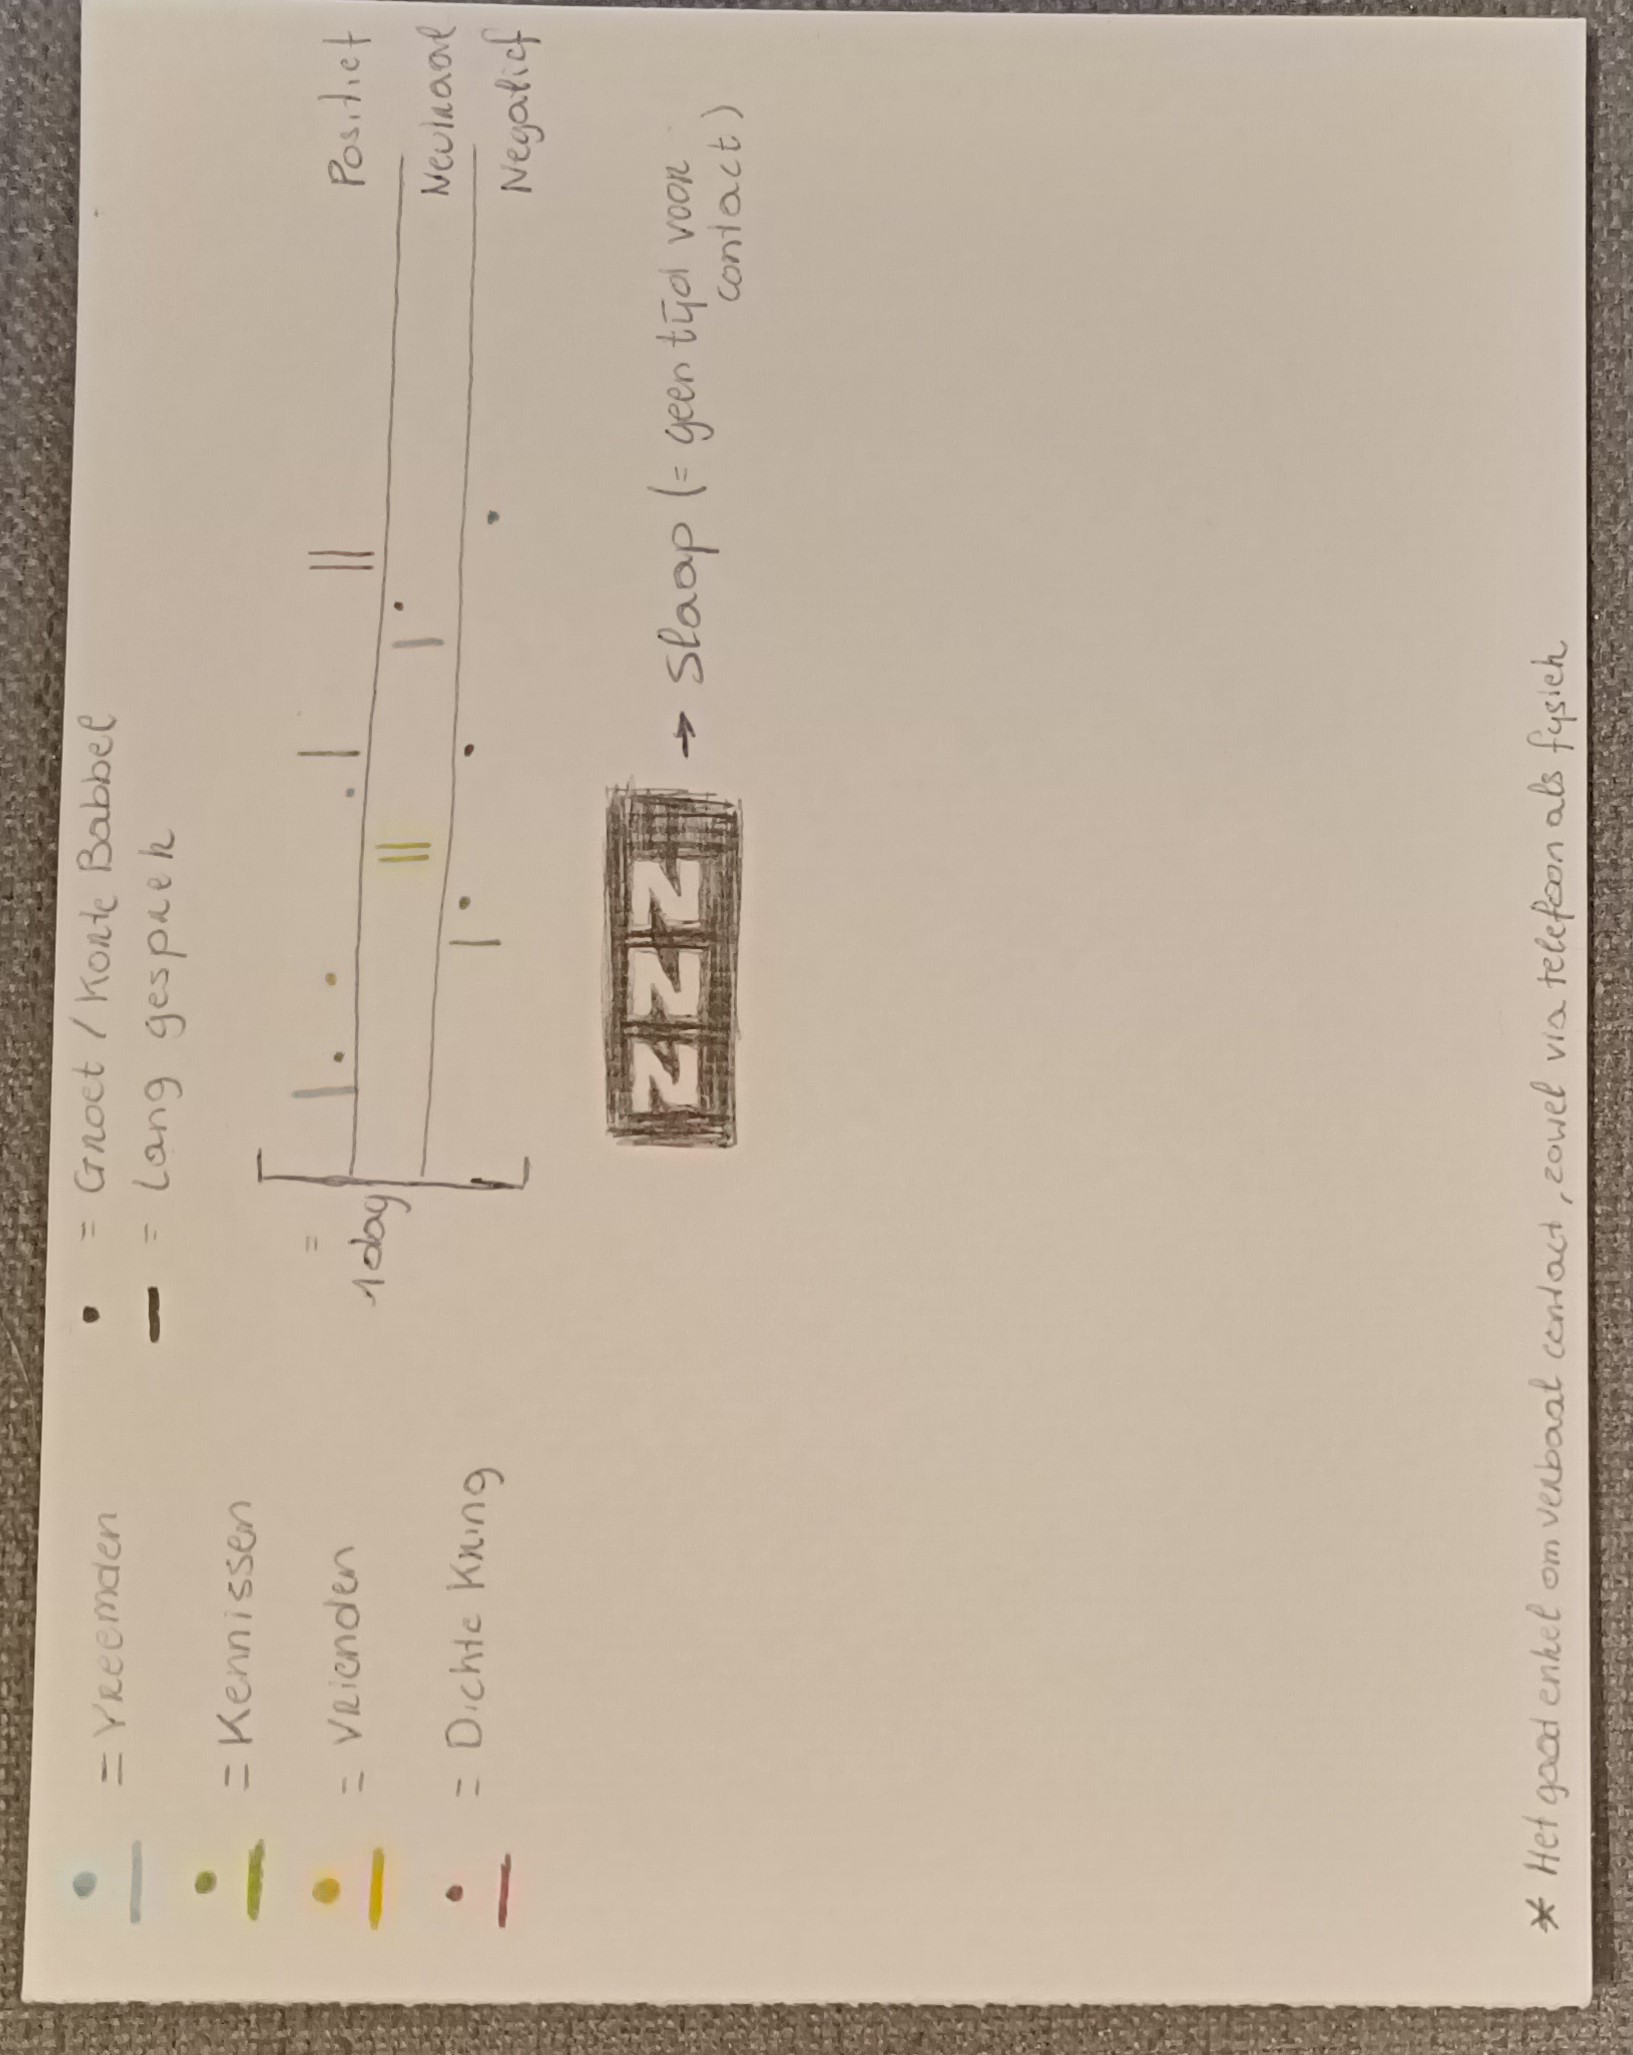 = Vreemden
= Kennissen
= Vrienden
= Dichte Kring
• = Groet / Korte Babbel
— = Lang gesprek
= 1 dag
Positief
Neutraal
Negatief
ZZZ → Slaap (= geen tijd voor
contact)
* Het gaat enkel om verbaal contact, zowel via telefoon als fysiek